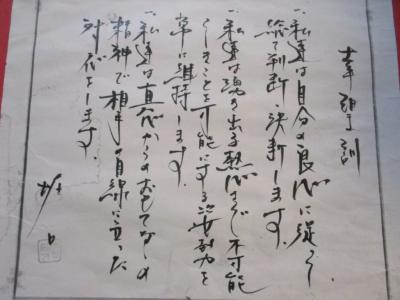 幸詔訓
一、私達は自分の良心に従って
総て判断、決断します。
一、私達は魂の出る熱心さで不可能
なことを可能にする忍耐力を
常に維持します。
一、私達は真心からのおもてなしの
精神で相手の目線に立った
対応をします。